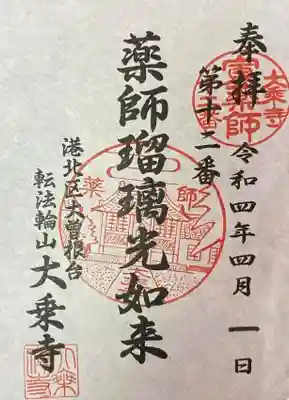 奉拝
第十二番
令和四年四月一日
薬師瑠璃光如来
港北区大曽根台
転法輪山 大乗寺
大乗寺
薬師